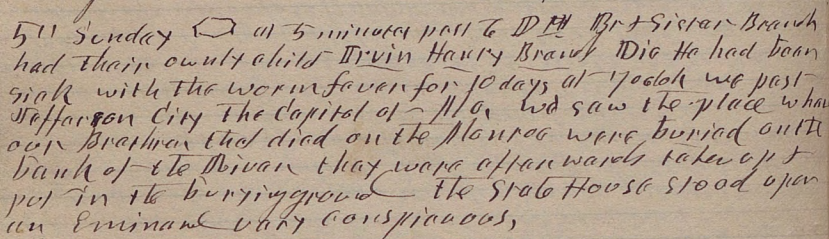 5th Sunday at 5 minutes past 6 PM Br & Sister Branch
had thair ownly child Irvin Henry Branch Die He had been
siek with the worm fever for 10 days at 7 oclok we past
Jefferson City The Capitol of Mo, we saw the place whare
our Brethren that died on the Monroe were buried on the
bank of the River thay ware afterwards taken up &
put in the burying ground the State House stood upon
an Eminanc vary conspicuous,